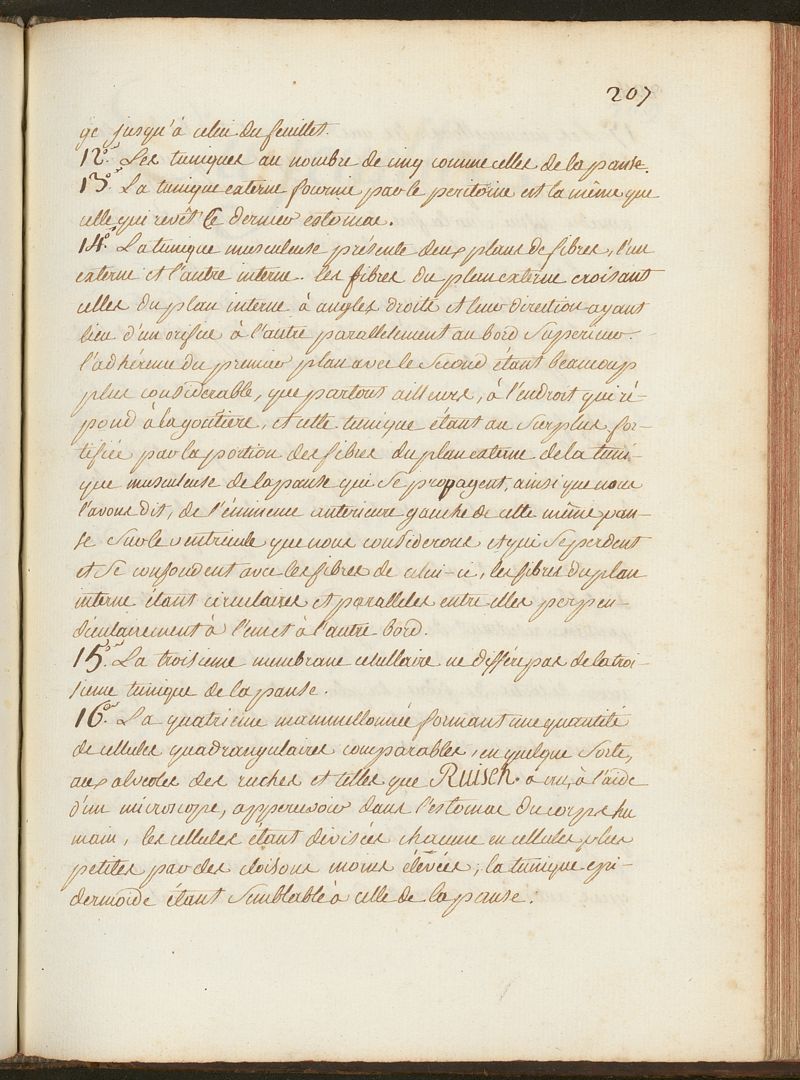 207
ge jusqu'à celui du feuillet.
12°. Les tuniques au nombre de cinq comme celles de la panse.
13°. La tunique externe fournie par le peritoine est la même que
celle qui revêt le dernier estomac.
14°. La tunique musculeuse présente deux plans de fibres, l'un
externe et l'autre interne. les fibres du plan externe croisant
celles du plan interne à angles droits et leur direction ayant
lieu d'un orifice à l'autre parallelement au bord superieur.
l'adhérence du premier plan avec le second étant beaucoup
plus considerable, que partout ailleurs, à l'endroit qui ré-
pond à la goutiere, et cette tunique étant au surplus for-
tifiée par la portion des fibres du plan externe de la tuni-
que musculeuse de la panse qui se propagent, ainsi que nous
l'avons dit, de l'éminence anterieure gauche de cette même pan-
se sur le ventricule que nous considerons et qui se perdent
et se confondent avec les fibres de celui-ci, les fibres du plan
interne étant circulaires et paralleles entre elles perpen-
diculairement à l'un et à l'autre bord.
15°. La troisieme membrane celullaire ne différe pas de la troi-
sieme tunique de la panse.
16°. La quatrieme mammellonnée formant une quantité
de cellules quadrangulaires comparables, en quelque sorte,
aux alveoles des ruches et telles que Ruisch a cru, à l'aide
d'un microscope, appercevoir dans l'estomac du corps hu
main, les cellules étant divisées chacune en cellules plus
petites par des cloisons moins élevées; la tunique epi-
dermoïde étant semblable à celle de la panse.